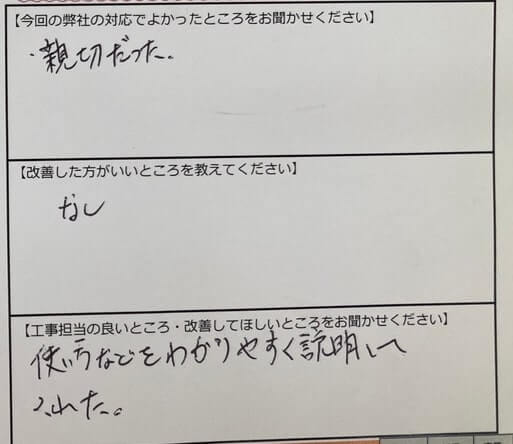 【今回の弊社の対応でよかったところをお聞かせください】
・親切だった。
【改善した方がいいところを教えてください】
なし
【工事担当の良いところ・改善してほしいところをお聞かせください】
使い方などをわかりやすく説明して
くれた。